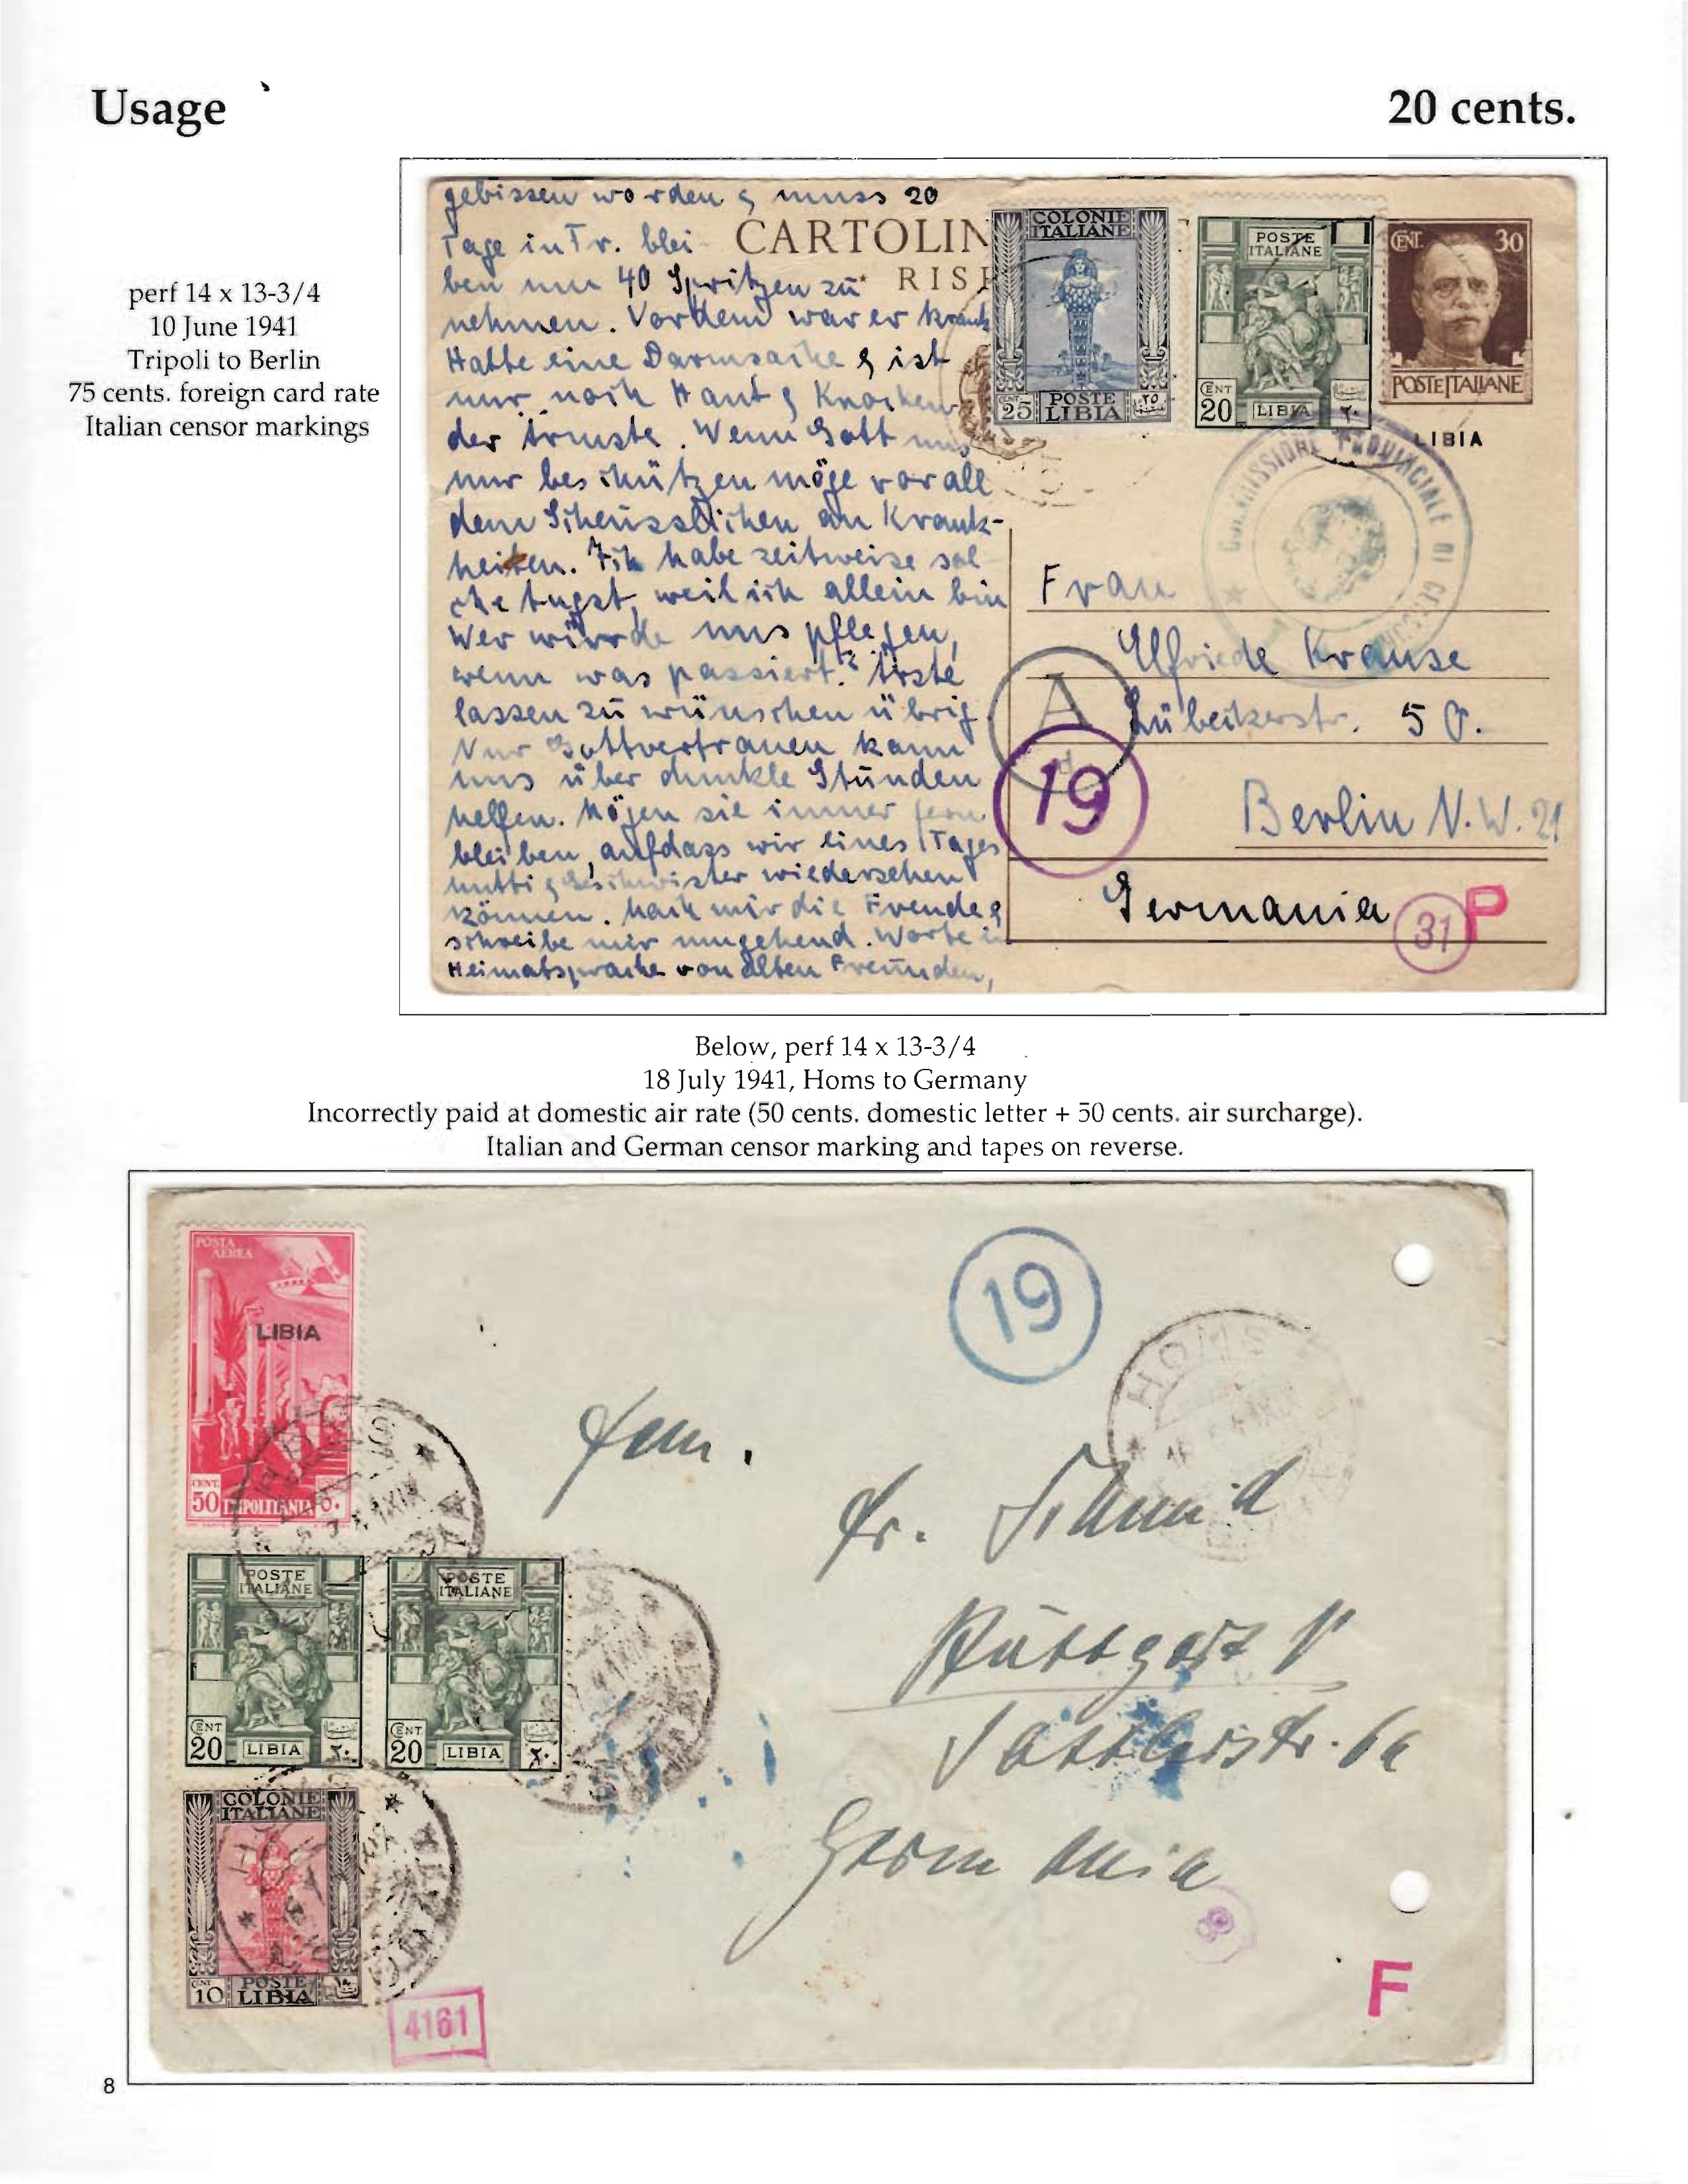 Usage
20 cents.
perf 14 x 13-3/4
10 June 1941
Tripoli to Berlin
75 cents. foreign card rate
Italian censor markings
gebissen worden & muss 20
Tage in Tr. blei-
ben um 40 Spritzen zu
nehmen. Vordem war er krank
Hatte eine Darmsache & ist
nur noch Haut & Knochen
der Ärmste. Wenn Gott uns
nur beschützen möge vor all
dem Scheusslichen an Krank-
heiten. Ich habe zeitweise sol
che Angst, weil ich allein bin
Wer würde uns pflegen,
wenn was passiert? Ärzte
lassen zu wünschen übrig
Nur Gottvertrauen kann
uns über dunkle Stunden
helfen. Mögen sie immer fern
bleiben, aufdass wir eines Tages
Mutti & Geschwister wiedersehen
können. Mach mir die Freude &
schreibe mir umgehend. Worte in
Heimatsprache von alten Freunden,
CARTOLIN
RISP
COLONIE
ITALIANE
CENT
25
POSTE
LIBIA
٢٥
POSTE
ITALIANE
CENT
20
LIBIA
٢٠
CENT. 30
POSTE ITALIANE
LIBIA
COMMISSIONE PROVINCIALE DI CENSURA
Frau
Elfriede Krause
Lübeckerstr. 50.
Berlin N.W. 21
Germania
A
d
19
31
P
Below, perf 14 x 13-3/4
18 July 1941, Homs to Germany
Incorrectly paid at domestic air rate (50 cents. domestic letter + 50 cents. air surcharge).
Italian and German censor marking and tapes on reverse.
POSTA
AEREA
LIBIA
CENT.
50 TRIPOLITANIA ٥٠
19
HOMS
Dr. Schmid
Stuttgart
Germania
POSTE
ITALIANE
CENT
20
LIBIA
٢٠
POSTE
ITALIANE
CENT
20
LIBIA
٢٠
COLONIE
ITALIANE
CENT
10
POSTE
LIBIA
4161
F
8